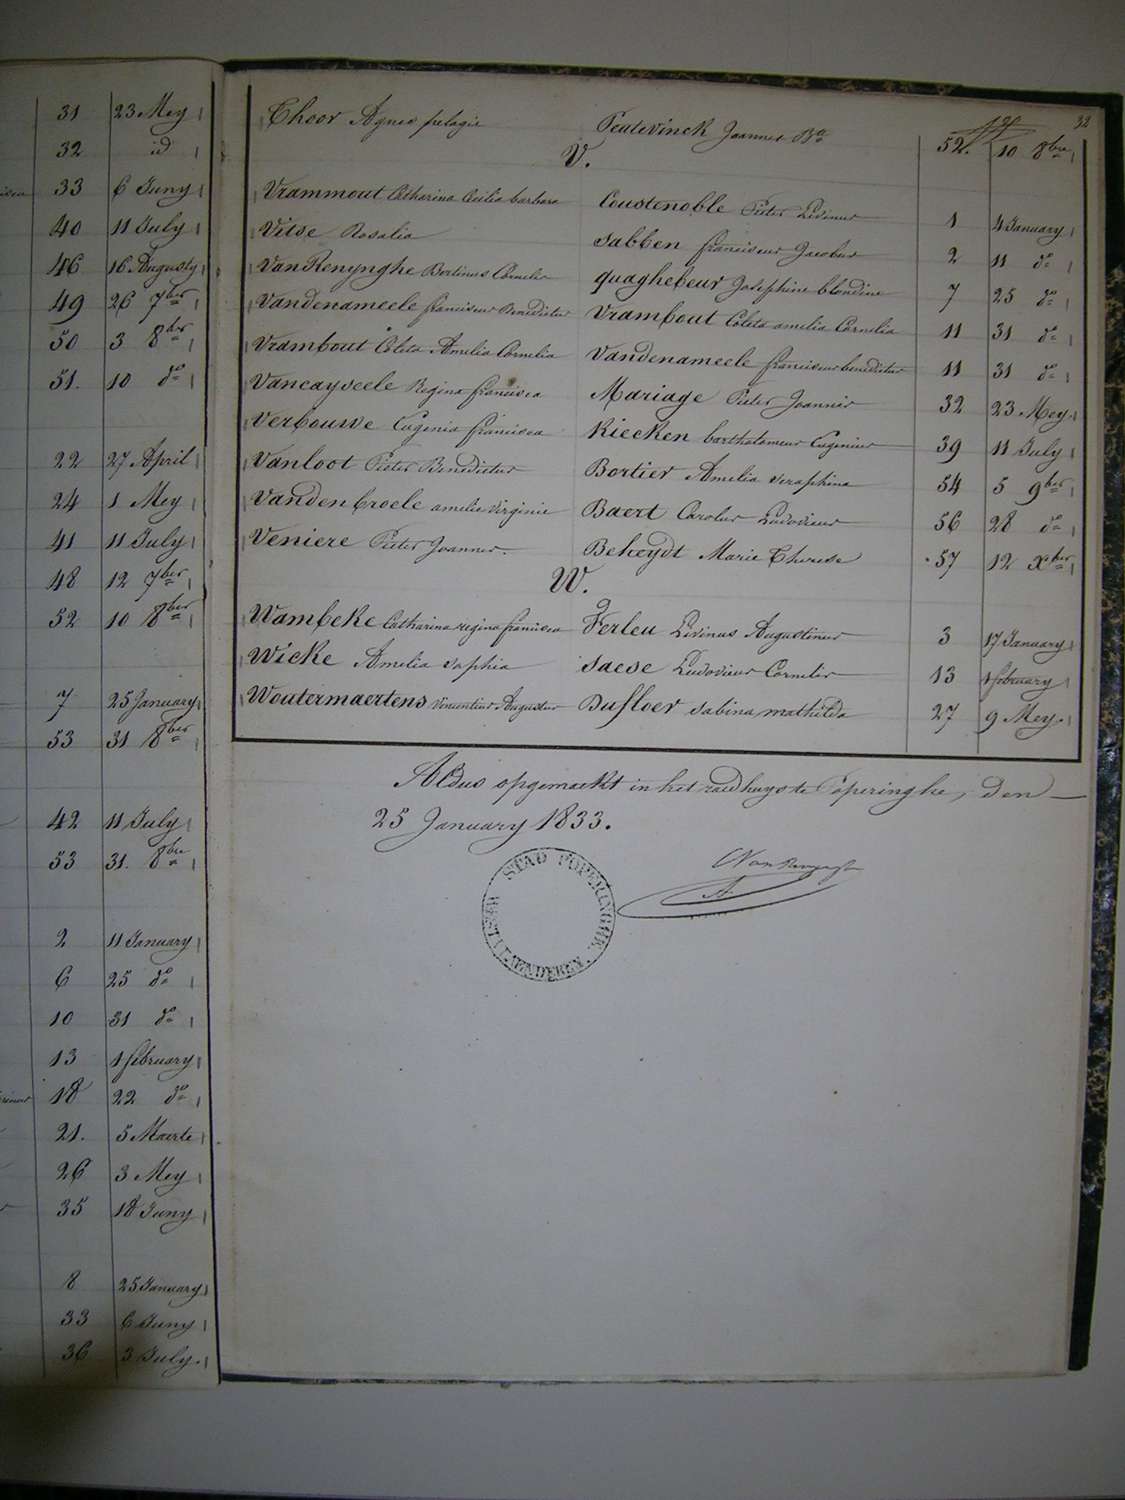 31 23 Mey
32 id
33 6 Juny
40 11 July
46 16 Augusty
49 26 7ber
50 3 8ber
51. 10 do
22 27 April
24 1 Mey
41 11 July
48 12 7ber
52 10 8ber
7 25 January
53 31 8ber
42 11 July
53 31. 8bre
2 11 January
6 25 do
10 31 do
13 1 february
18 22 do
21. 5 Maerte
26 3 Mey
35 18 Juny
8 25 January
33 6 Juny
36 3 July.
32
Thoor Agnes pelagie Joannes Bta 52. 10 8bre
V.
Vrammout Catharina Cecilia barbara Coustenoble Pieter Livinus 1 4 January
Vitse Rosalia Sabben franciscus Jacobus 2 11 do
Van Renynghe Bertinus Cornelis quaghebeur Josephine blondine 7 25 do
Vandenameele franciscus Benedictus Vrambout Coleta amelia Cornelia 11 31 do
Vrambout Coleta Amelia Cornelia Vandenameele franciscus benedictus 11 31 do
Vancayseele Regina francisca Mariage Pieter Joannes 32 23 Mey.
Verbouwe Eugenia francisca Kiecken barthalomeus Eugenius 39 11 July
Vanloot Pieter Benedictus Bortier Amelia Seraphina 54 5 9ber
Vandenbroele amelie Virginie Baert Carolus Ludovicus 56 28 do
Veniere Pieter Joannes. Beheydt Marie Therese 57 12 Xber
W.
Wambeke Catharina regina francisca Ferleu Livinus Augustinus 3 17 January
Wicke Amelia Sophia Saese Ludovicus Cornelis 13 1 february
Woutermaertens Vincentius Augustus Dufloer Sabina mathilda 27 9 Mey.
Aldus opgemaekt in het raedhuys te Poperinghe, den
25 January 1833.
STAD POPERINGHE.
WESTVLAENDEREN.